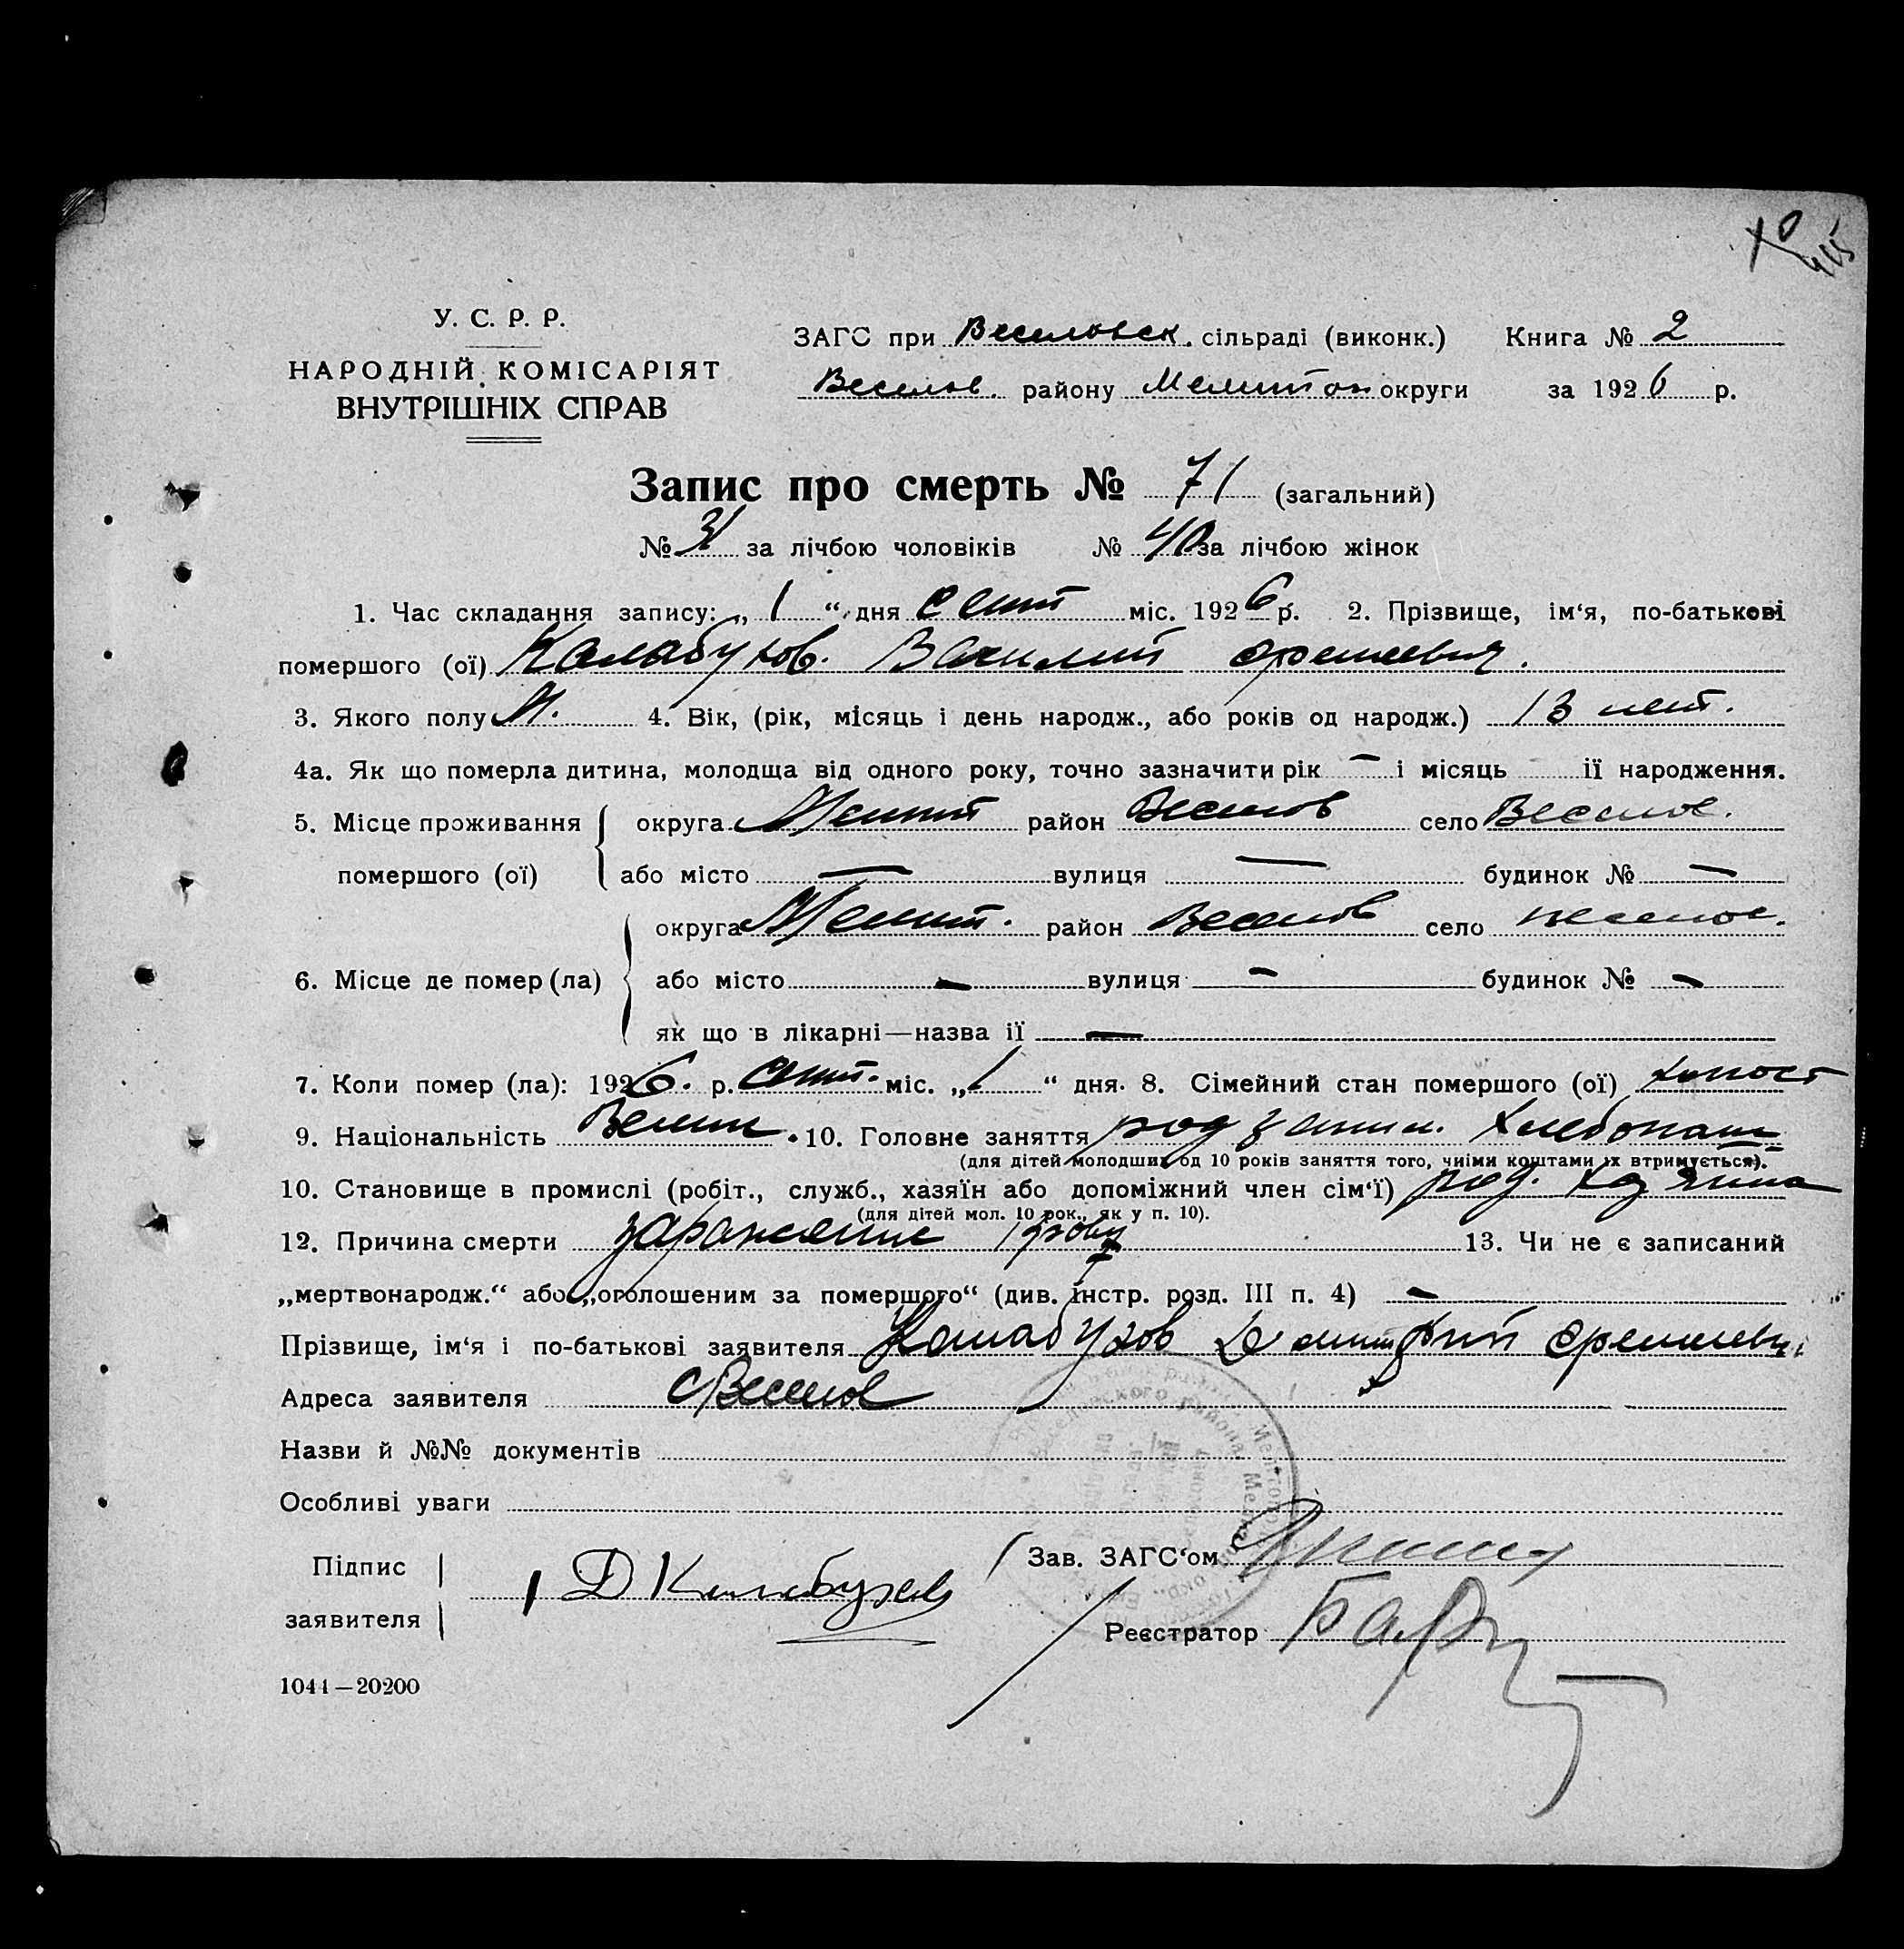 У. С. Р. Р.
НАРОДНІЙ КОМІСАРІЯТ
ВНУТРІШНІХ СПРАВ
ЗАГС при Веселовск. сільраді (виконк.) Книга № 2
Веселов. району Мелитоп округи за 1926 р.
Запис про смерть № 71 (загальний)
№ 31 за лічбою чоловіків № 40 за лічбою жінок
1. Час складання запису: „ 1 “ дня сент міс. 1926 р. 2. Прізвище, ім‘я, по-батькові
помершого (ої) Калабухов. Василий
3. Якого полу М. 4. Вік, (рік, місяць і день народж., або років од народж.) 13 лет.
4а. Як що померла дитина, молодща від одного року, точно зазначити рік — і місяць ії народження.
5. Місце проживання помершого (ої) округа Мелит район Веселов село Веселое.
або місто — вулиця — будинок № —
6. Місце де помер (ла) округа Мелит. район Веселов село Веселое.
або місто — вулиця — будинок № —
як що в лікарні—назва ії —
7. Коли помер (ла): 1926. р. сент. міс. „ 1 “ дня. 8. Сімейний стан помершого (ої) холост
9. Національність 10. Головне заняття род заним. хлебопаш
(для дітей молодших од 10 років заняття того, чиїми коштами їх втримується).
10. Становище в промислі (робіт., служб., хазяїн або допоміжний член сім‘ї) род. хазяина
(для дітей мол. 10 рок., як у п. 10).
12. Причина смерти заражение крови 13. Чи не є записаний
„мертвонародж.“ або „оголошеним за померщого“ (див. інстр. розд. III п. 4) —
Прізвище, ім‘я і по-батькові заявителя Калабухов Дмитрий
Адреса заявителя с Веселое
Назви й №№ документів
Особливі уваги
Підпис заявителя Д Калабухов
Зав. ЗАГС‘ом
Реєстратор
1044—20200